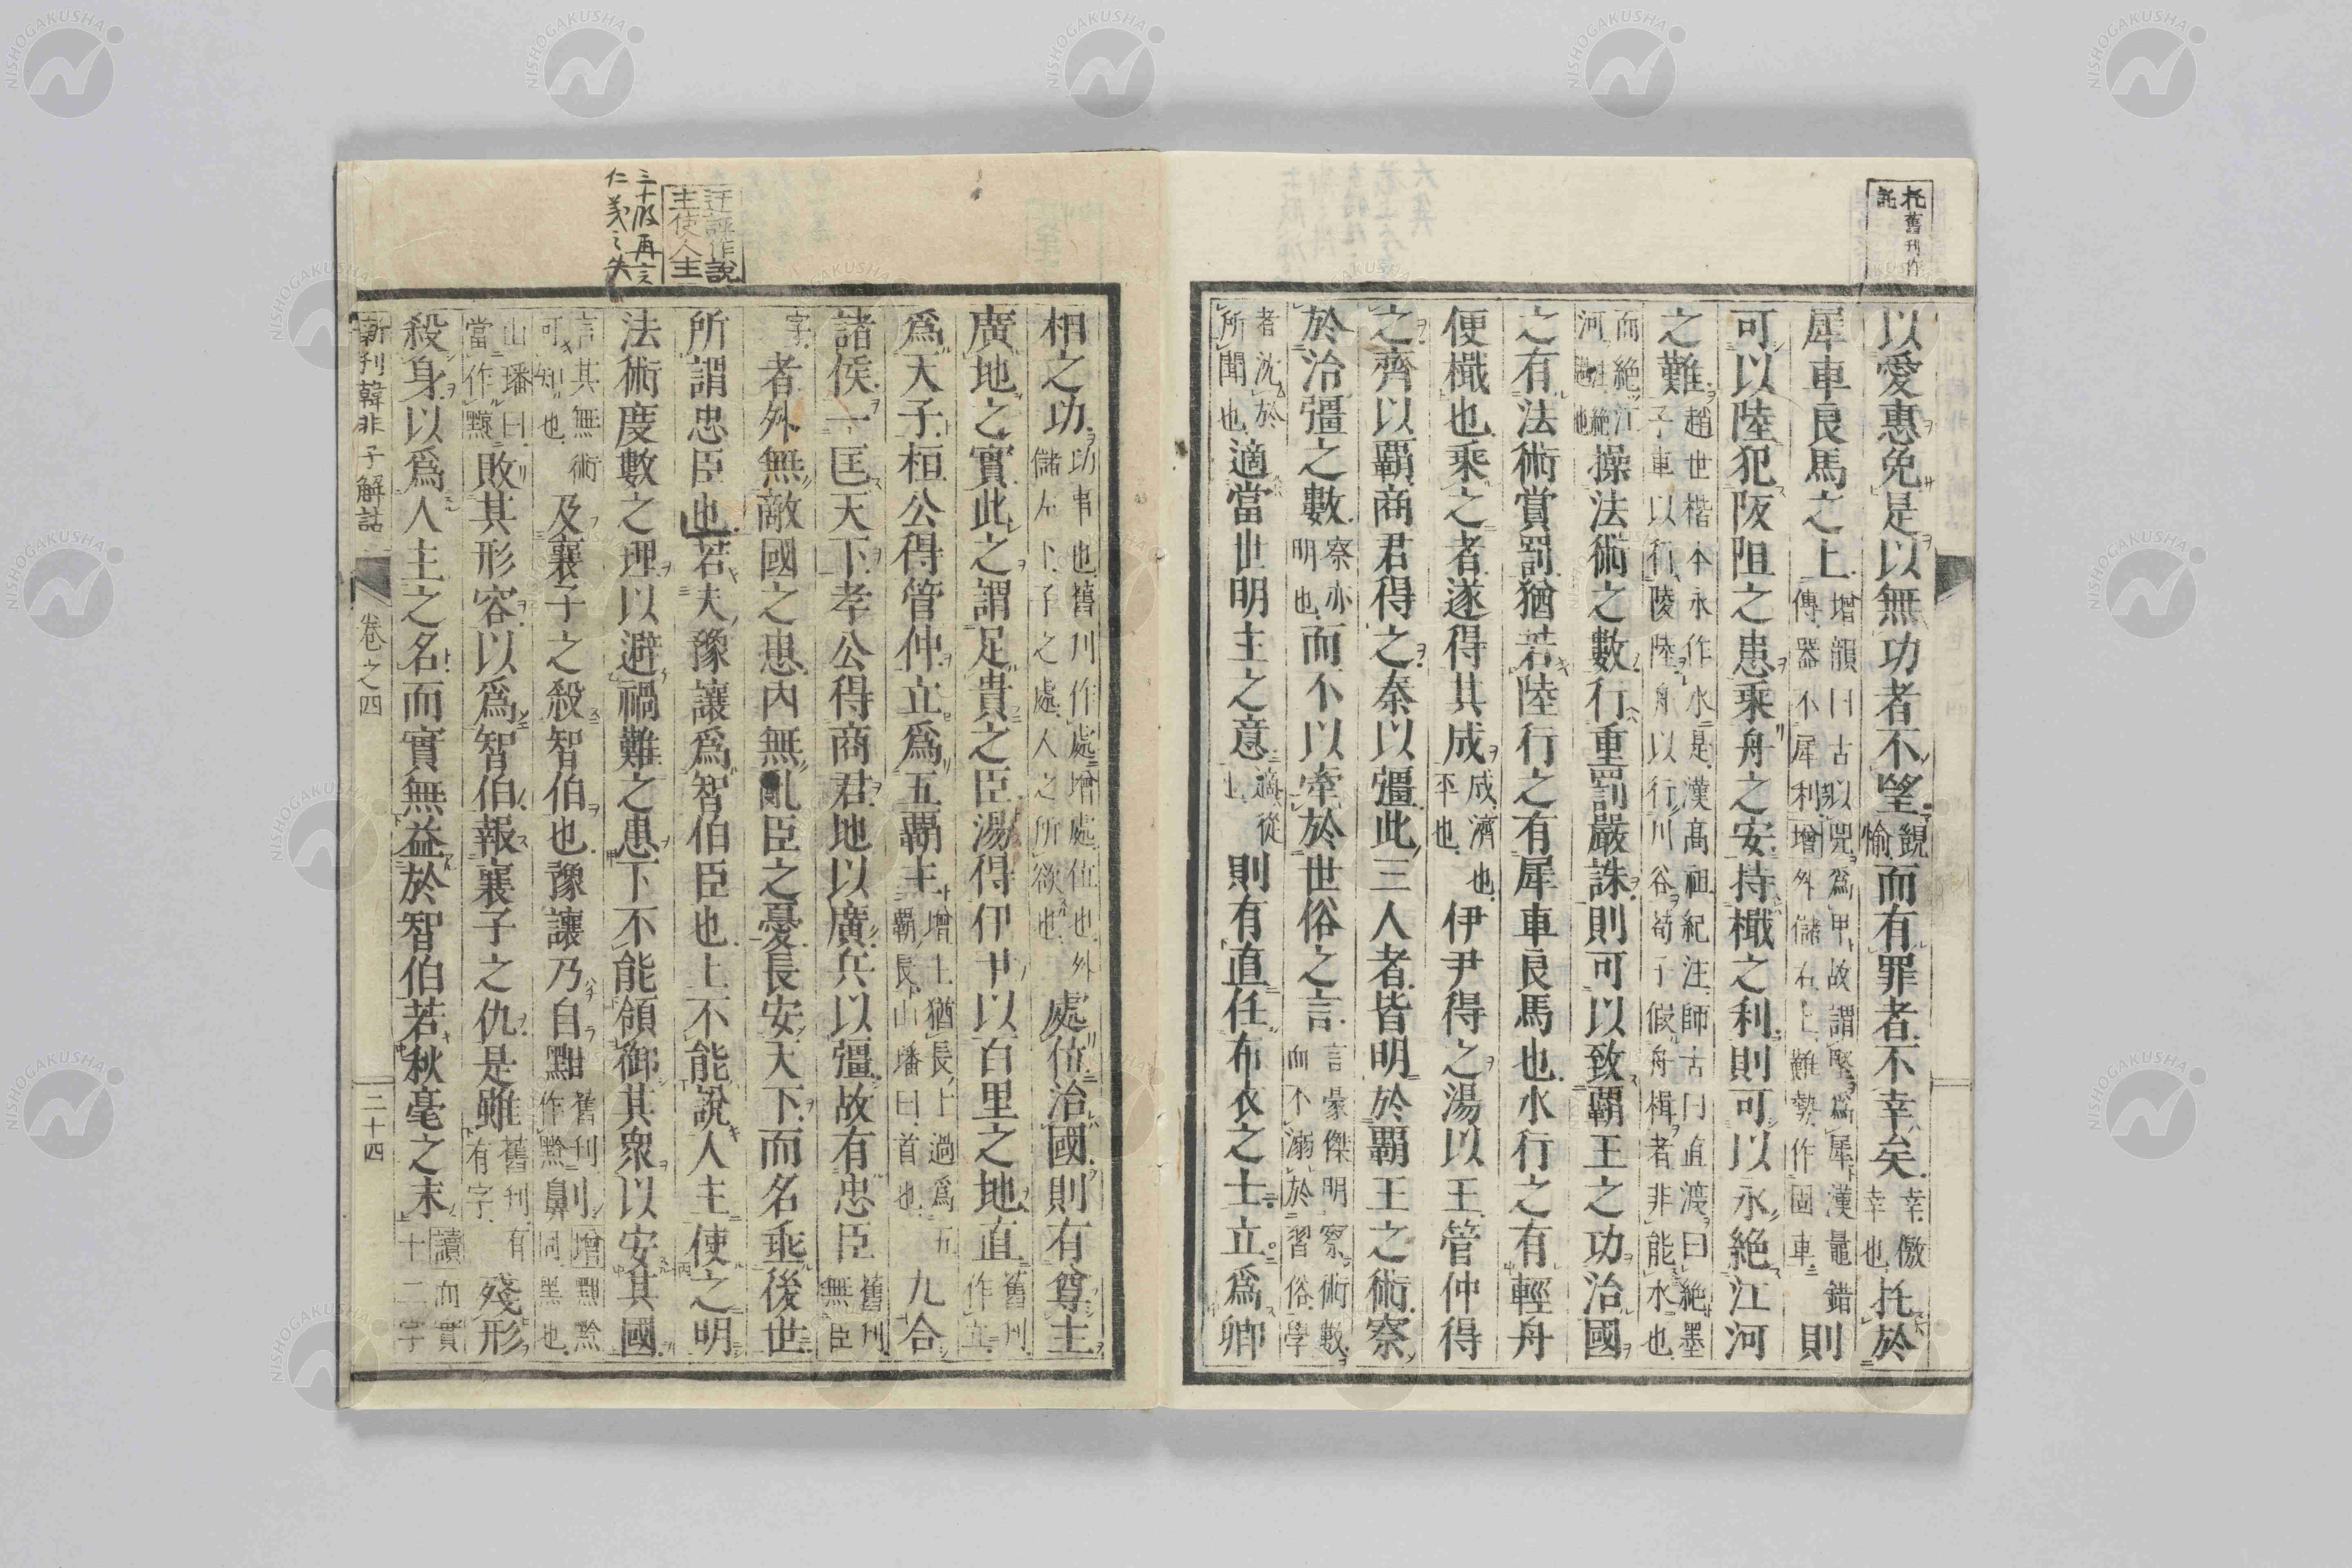 托舊刊作
託
以愛惠免是以無功者不望覬愉而有罪者不幸矣幸傲幸也托於
犀車良馬之上增韻曰古以兕爲甲故謂堅爲犀漢鼂錯傳器不犀利增外儲右上難勢作固車則
可以陸犯阪阻之患乘舟之安持檝之利則可以永絕江河
之難趙世楷本永作水是漢高祖紀注師古曰直渡曰絕墨子車以行陵陸舟以行川谷荀子假舟楫者非能水也
而絕江河絕也操法術之數行重罰嚴誅則可以致霸王之功治國
之有法術賞罰猶若陸行之有犀車良馬也水行之有輕舟
便檝也乘之者遂得其成成濟也平也伊尹得之湯以王管仲得
之齊以霸商君得之秦以彊此三人者皆明於霸王之術察
於治彊之數察亦明也而不以牽於世俗之言言豪傑明察術數而不溺於習俗學
者沈於所聞也適當世明主之意適從也則有直任布衣之士立爲卿
相之功功事也舊刊作處增處位也外儲左上子之處人之所欲也處位治國則有尊主
廣地之實此之謂足貴之臣湯得伊尹以百里之地直舊刊作立
爲天子桓公得管仲立爲五霸主增主猶長上過爲五霸長山璠曰首也九合
諸侯一匡天下孝公得商君地以廣兵以彊故有忠臣舊刊無臣
字者外無敵國之患內無亂臣之憂長安天下而名垂後世
所謂忠臣也若夫豫讓爲智伯臣也上不能說人主使之明
法術度數之理以避禍難之患下不能領御其衆以安其國
言其無術可知也及襄子之殺智伯也豫讓乃自黔舊刊刂作黔劓增黥黔同黑也
山璠曰當作黥敗其形容以爲智伯報襄子之仇是雖舊刊有有字殘形
殺身以爲人主之名而實無益於智伯若秋毫之末讀而實十二字
新刊韓非子解詁
卷之四
三十四
迂評作說
主使人主
三十版再言
仁義之失